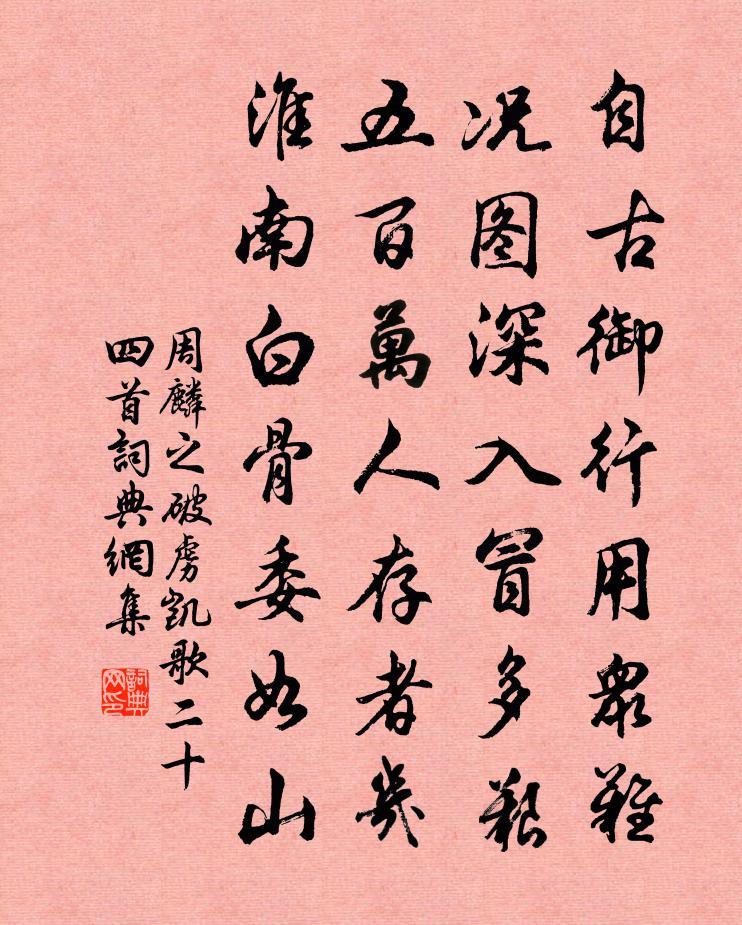 自古御行用眾難
况图深入冒多艱
五百萬人存者幾
淮南白骨委如山
周麟之破虜凱歌二十
四首詞典網集
詞典网印